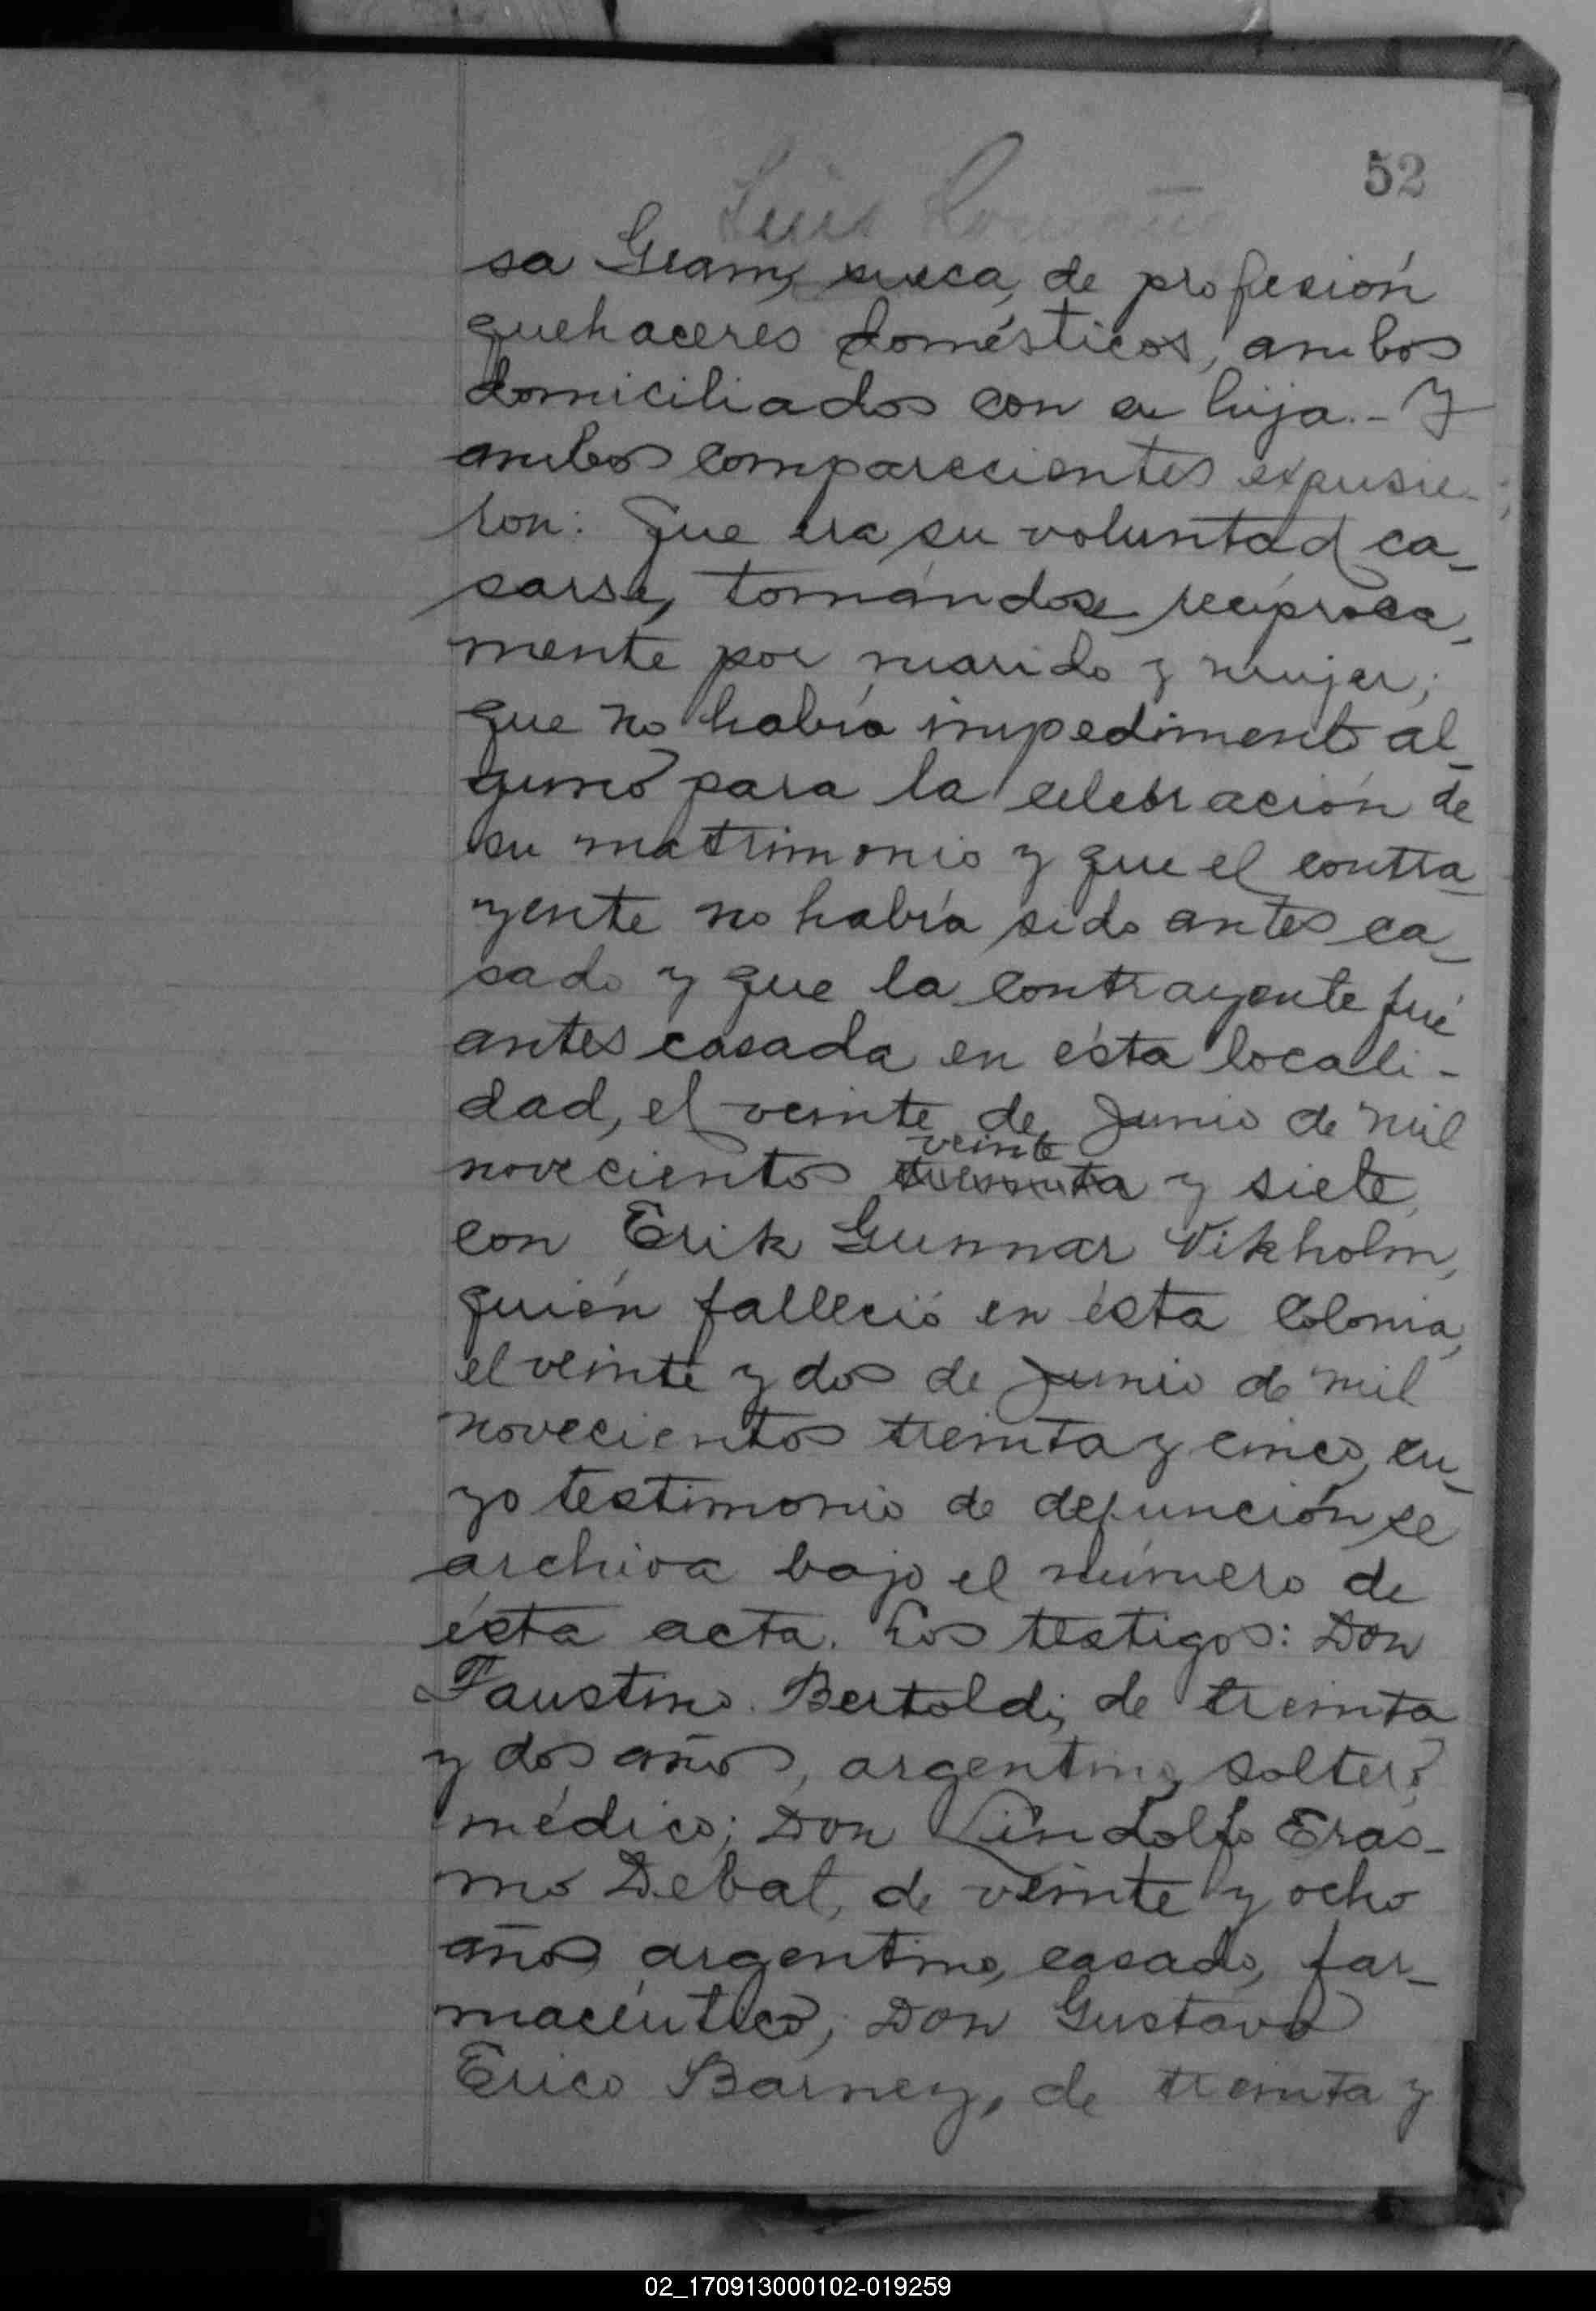 52
Luis
sa Gram, sueca, de profesión
quehaceres domésticos, ambos
domiciliados con su hija.- Y
ambos comparecientes expusie-
ron: Que era su voluntad ca-
sarse, tomándose recíproca-
mente por marido y mujer;
que no había impedimento al-
guno para la celebración de
su matrimonio y que el contra-
yente no había sido antes ca-
sado y que la contrayente fué
antes casada en ésta locali-
dad, el veinte de Junio de mil
veinte
novecientos treinta y siete,
con Erik Gunnar Vikholm,
quién falleció en ésta Colonia,
el veinte y dos de Junio de mil
novecientos treinta y cinco, cu-
yo testimonio de defunción se
archiva bajo el número de
ésta acta. Los testigos: Don
Faustino Bertoldi, de treinta
y dos años, argentino, soltero,
médico; Don Lindolfo Eras-
mo Debat, de veinte y ocho
años, argentino, casado, far-
macéutico; Don Gustavo
Erico Barney, de treinta y
02_170913000102-019259